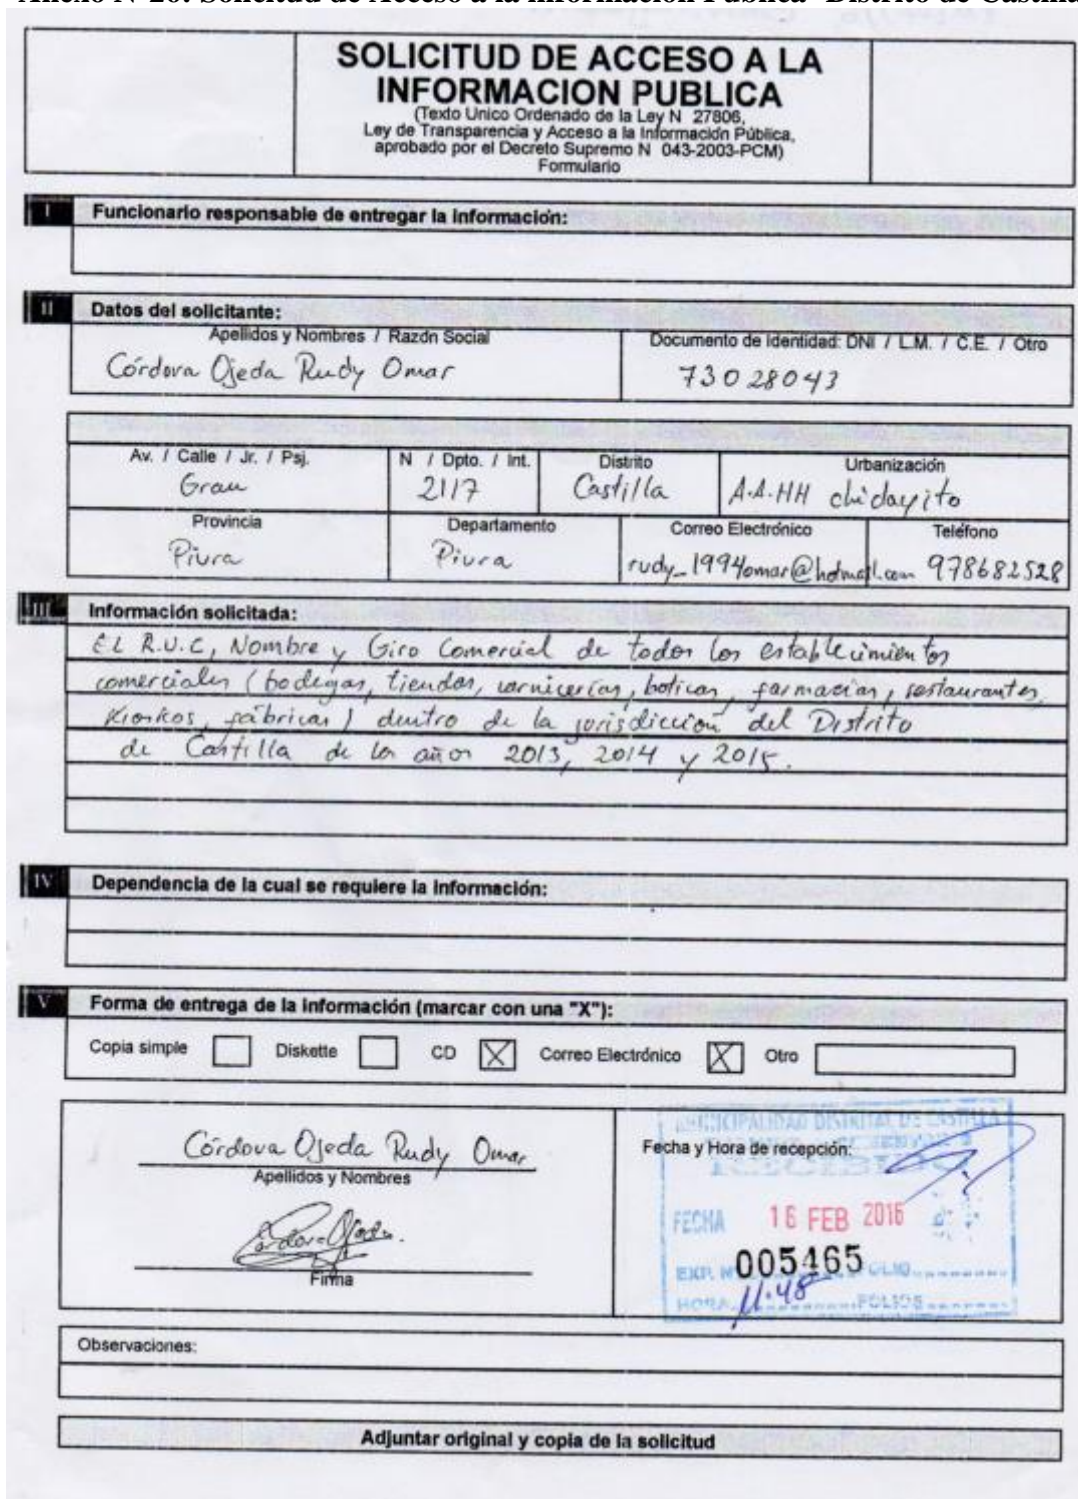 Anexo N°20: Solicitud de Acceso a la Información Pública- Distrito de Castilla
SOLICITUD DE ACCESO A LA
INFORMACION PUBLICA
(Texto Unico Ordenado de la Ley N 27806,
Ley de Transparencia y Acceso a la Información Pública,
aprobado por el Decreto Supremo N 043-2003-PCM)
Formulario
I Funcionario responsable de entregar la información:
II Datos del solicitante:
Apellidos y Nombres / Razón Social Documento de Identidad: DNI / L.M. / C.E. / Otro
Córdova Ojeda Rudy Omar 73028043
Av. / Calle / Jr. / Psj. N / Dpto. / Int. Distrito Urbanización
Grau 2117 Castilla A.A.HH chidayito
Provincia Departamento Correo Electrónico Teléfono
Piura Piura rudy_1994omar@hotmail.com 978682528
III Información solicitada:
EL R.U.C, Nombre y Giro Comercial de todos los establecimientos
comerciales (bodegas, tiendas, carnicerías, boticas, farmacias, restaurantes,
Kioskos, fábricas) dentro de la jurisdicción del Distrito
de Castilla de los años 2013, 2014 y 2015.
IV Dependencia de la cual se requiere la información:
V Forma de entrega de la información (marcar con una "X"):
Copia simple Diskette CD X Correo Electrónico X Otro
Córdova Ojeda Rudy Omar
Apellidos y Nombres
Firma
MUNICIPALIDAD DISTRITAL DE CASTILLA
Fecha y Hora de recepción:
RECIBIDO
FECHA 16 FEB 2016
EXP. N 005465 FOLIO
HORA 11:48 FOLIOS
Observaciones:
Adjuntar original y copia de la solicitud